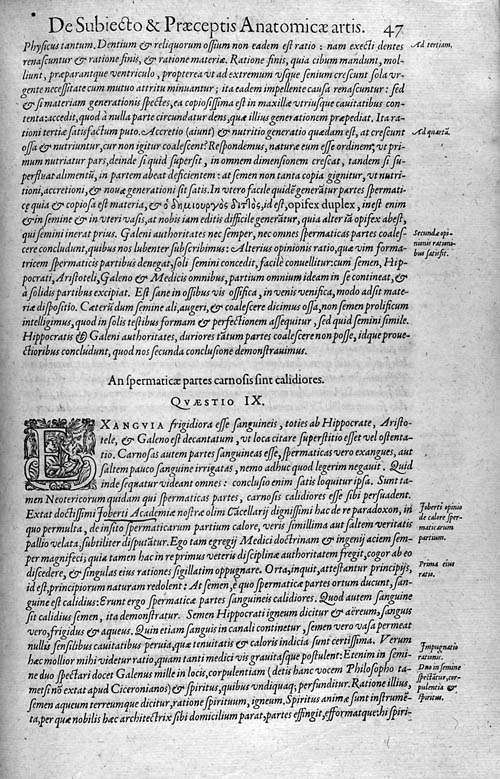 De Subiecto & Præceptis Anatomicæ artis. 47
Physicus tantum. Dentium & reliquorum ossium non eadem est ratio : nam execti dentes
Ad tertiam.
renascuntur & ratione finis, & ratione materiæ. Ratione finis, quia cibum mandunt, mol-
liunt, præparantque ventriculo, propterea vt ad extremum vsque senium crescunt sola vr-
gente necessitate cum mutuo attritu minuantur ; ita eadem impellente causa renascuntur : sed
& si materiam generationis spectes, ea copiosissima est in maxillæ vtriusque cauitatibus con-
tenta: accedit, quod à nulla parte circundatur dens, quæ illius generationem præpediat. Ita ra-
tioni tertiæ satisfactum puto. Accretio (aiunt) & nutritio generatio quædam est, at crescunt
Ad quartā.
ossa & nutriuntur, cur non igitur coalescent? Respondemus, naturæ eum esse ordinem, vt pri-
mum nutriat pars, deinde si quid supersit, in omnem dimensionem crescat, tandem si su-
perfluat alimentū, in partem abeat deficientem : at semen non tanta copia gignitur, vt nutri-
tioni, accretioni, & nouæ generationi sit satis. In vtero facile quidē generātur partes spermati-
cę quia & copiosa est materia, & ὁ δημιουργὸς διττὸς, id est, opifex duplex, inest enim
& in semine & in vteri vasis, at nobis iam editis difficile generātur, quia alter iā opifex abest,
qui semini inerat prius. Galeni authoritates nec semper, nec omnes spermaticas partes coales-
Secundæ opi-
cere concludunt, quibus nos lubenter subscribimus : Alterius opinionis ratio, quæ vim forma-
nionis rationi-
tricem spermaticis partibus denegat, soli semini concedit, facile conuellitur: cum semen, Hip-
bus satisfit.
pocrati, Aristoteli, Galeno & Medicis omnibus, partium omnium ideam in se contineat, &
à solidis partibus excipiat. Est sane in ossibus vis ossifica, in venis venifica, modo adsit mate-
riæ dispositio. Cæterū dum semine ali, augeri, & coalescere dicimus ossa, non semen prolificum
intelligimus, quod in solis testibus formam & perfectionem assequitur, sed quid semini simile.
Hippocratis & Galeni authoritates, duriores tātum partes coalescere non posse, idque proue-
ctioribus concludunt, quod nos secunda conclusione demonstrauimus.
An spermaticæ partes carnosis sint calidiores.
QVÆSTIO IX.
EXANGVIA frigidiora esse sanguineis, toties ab Hippocrate, Aristo-
tele, & Galeno est decantatum, vt loca citare superstitio esset vel ostenta-
tio. Carnosas autem partes sanguineas esse, spermaticas vero exangues, aut
saltem pauco sanguine irrigatas, nemo adhuc quod legerim negauit. Quid
inde sequatur videant omnes : conclusio enim satis loquitur ipsa. Sunt ta-
men Neotericorum quidam qui spermaticas partes, carnosis calidiores esse sibi persuadent.
Extat doctissimi Joberti Academiæ nostræ olim Cācellarij dignissimi hac de re paradoxon, in
Joberti opinio
quo permulta, de insito spermaticarum partium calore, veris simillima aut saltem veritatis
de calore sper-
maticarum
pallio velata, subtiliter disputātur. Ego tam egregij Medici doctrinam & ingenij aciem sem-
partium.
per magnifeci; quia tamen hac in re primus veteru disciplinæ authoritatem fregit, cogor ab eo
discedere, & singulas eius rationes sigillatim oppugnare. Orta, inquit, attestantur principijs,
Prima eius
id est, principiorum naturam redolent : At semen, è quo spermaticæ partes ortum ducunt, san-
ratio.
guine est calidius: Erunt ergo spermaticæ partes sanguineis calidiores. Quod autem sanguine
sit calidius semen, ita demonstratur. Semen Hippocrati igneum dicitur & aëreum, sanguis
vero, frigidus & aqueus. Quin etiam sanguis in canali continetur, semen vero vasa permeat
nullis sensibilibus cauitatibus peruia, quæ tenuitatis & caloris indicia sunt certissima. Verum
Impugnatio
hæc mollior mihi videtur ratio, quam tanti medici vis grauitasque postulent: Etenim in semi-
rationis.
ne duo spectari docet Galenus mille in locis, corpulentiam (detis hanc vocem Philosopho ta-
Duo in semine
spectātur, cor-
metsi nō extat apud Ciceronianos) & spiritus, quibus vndiquaq; perfunditur. Ratione illius,
pulentia &
semen aqueum terreumque dicitur, ratione spirituum, igneum. Spiritus animæ sunt instrumē-
spiritus.
ta, per quæ nobilis hæc architectrix sibi domicilium parat, partes effingit, efformatque: hi spiri-